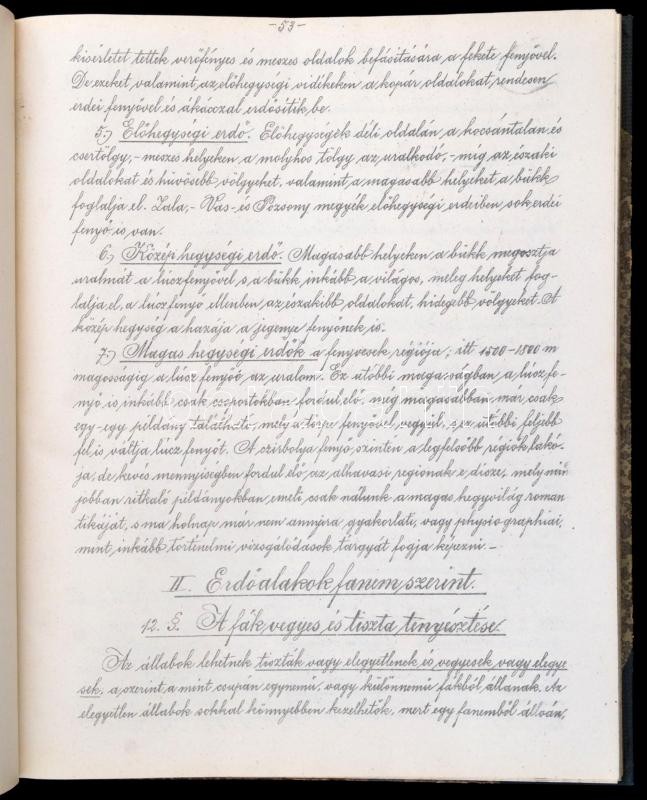 -53-
kisérletet tettek verőfényes és meszes oldalok befásitására a fekete fenyővel.
De ezeket valamint az előhegységi vidékeken a kopár oldalokat, rendesen
erdei fenyővel és ákáczal erdősitik be.
5.) Előhegységi erdő. Előhegységek déli oldalán a kocsántalan és
csertölgy, - meszes helyeken a molyhos tölgy az uralkodó, - mig az északi
oldalokat és hüvösebb völgyeket, valamint a magasabb helyeket a bükk
foglalja el. Zala, - Vas - és Pozsony megyék előhegységi erdeiben, sok erdei
fenyő is van.
6.) Közép hegységi erdő. Magasabb helyeken a bükk megosztja
uralmát a lúczfenyővel s a bükk inkább a világos, meleg helyeket fog-
lalja el, a lúczfenyő ellenben, az északibb oldalokat, hidegebb völgyeket. A
közép hegység a hazája a jegenye fenyőnek is.
7.) Magas hegységi erdők a fenyvesek régiója, itt 1500-1800 m
magosságig a lúcz fenyőé az uralom. Ez utóbbi magasságban a lúcz fe-
nyő is, inkább csak csoportokban fordul elő, meg magasabban már csak
egy-egy példány található, mely a törpe fenyővel vegyül, ez utóbbi feljebb
fel is váltja lúcz fenyőt. A czirbolya fenyő szintén a legfelsőbb régiók lakó-
ja, de kevés mennyiségben fordul elő, az alhavasi regionak e disze, mely már
jobban ritkaló példányokban emeli csak nálunk a magas hegyvilág roman
tikáját, s ma holnap már nem annyira gyakorlati, vagy physiographiai,
mint inkább történelmi vizsgálódások tárgyát fogja képezni. -
II. Erdőalakok fanem szerint.
12. §. A fák vegyes és tiszta tenyésztése.
Az állabok lehetnek tiszták vagy elegyetlenek és vegyesek vagy elegye
sek, a szerint a mint csupán egynemü, vagy különnemü fákból állanak. Az
elegyetlen állabok sokkal könnyebben kezelhetők, mert egy fanemből állván,